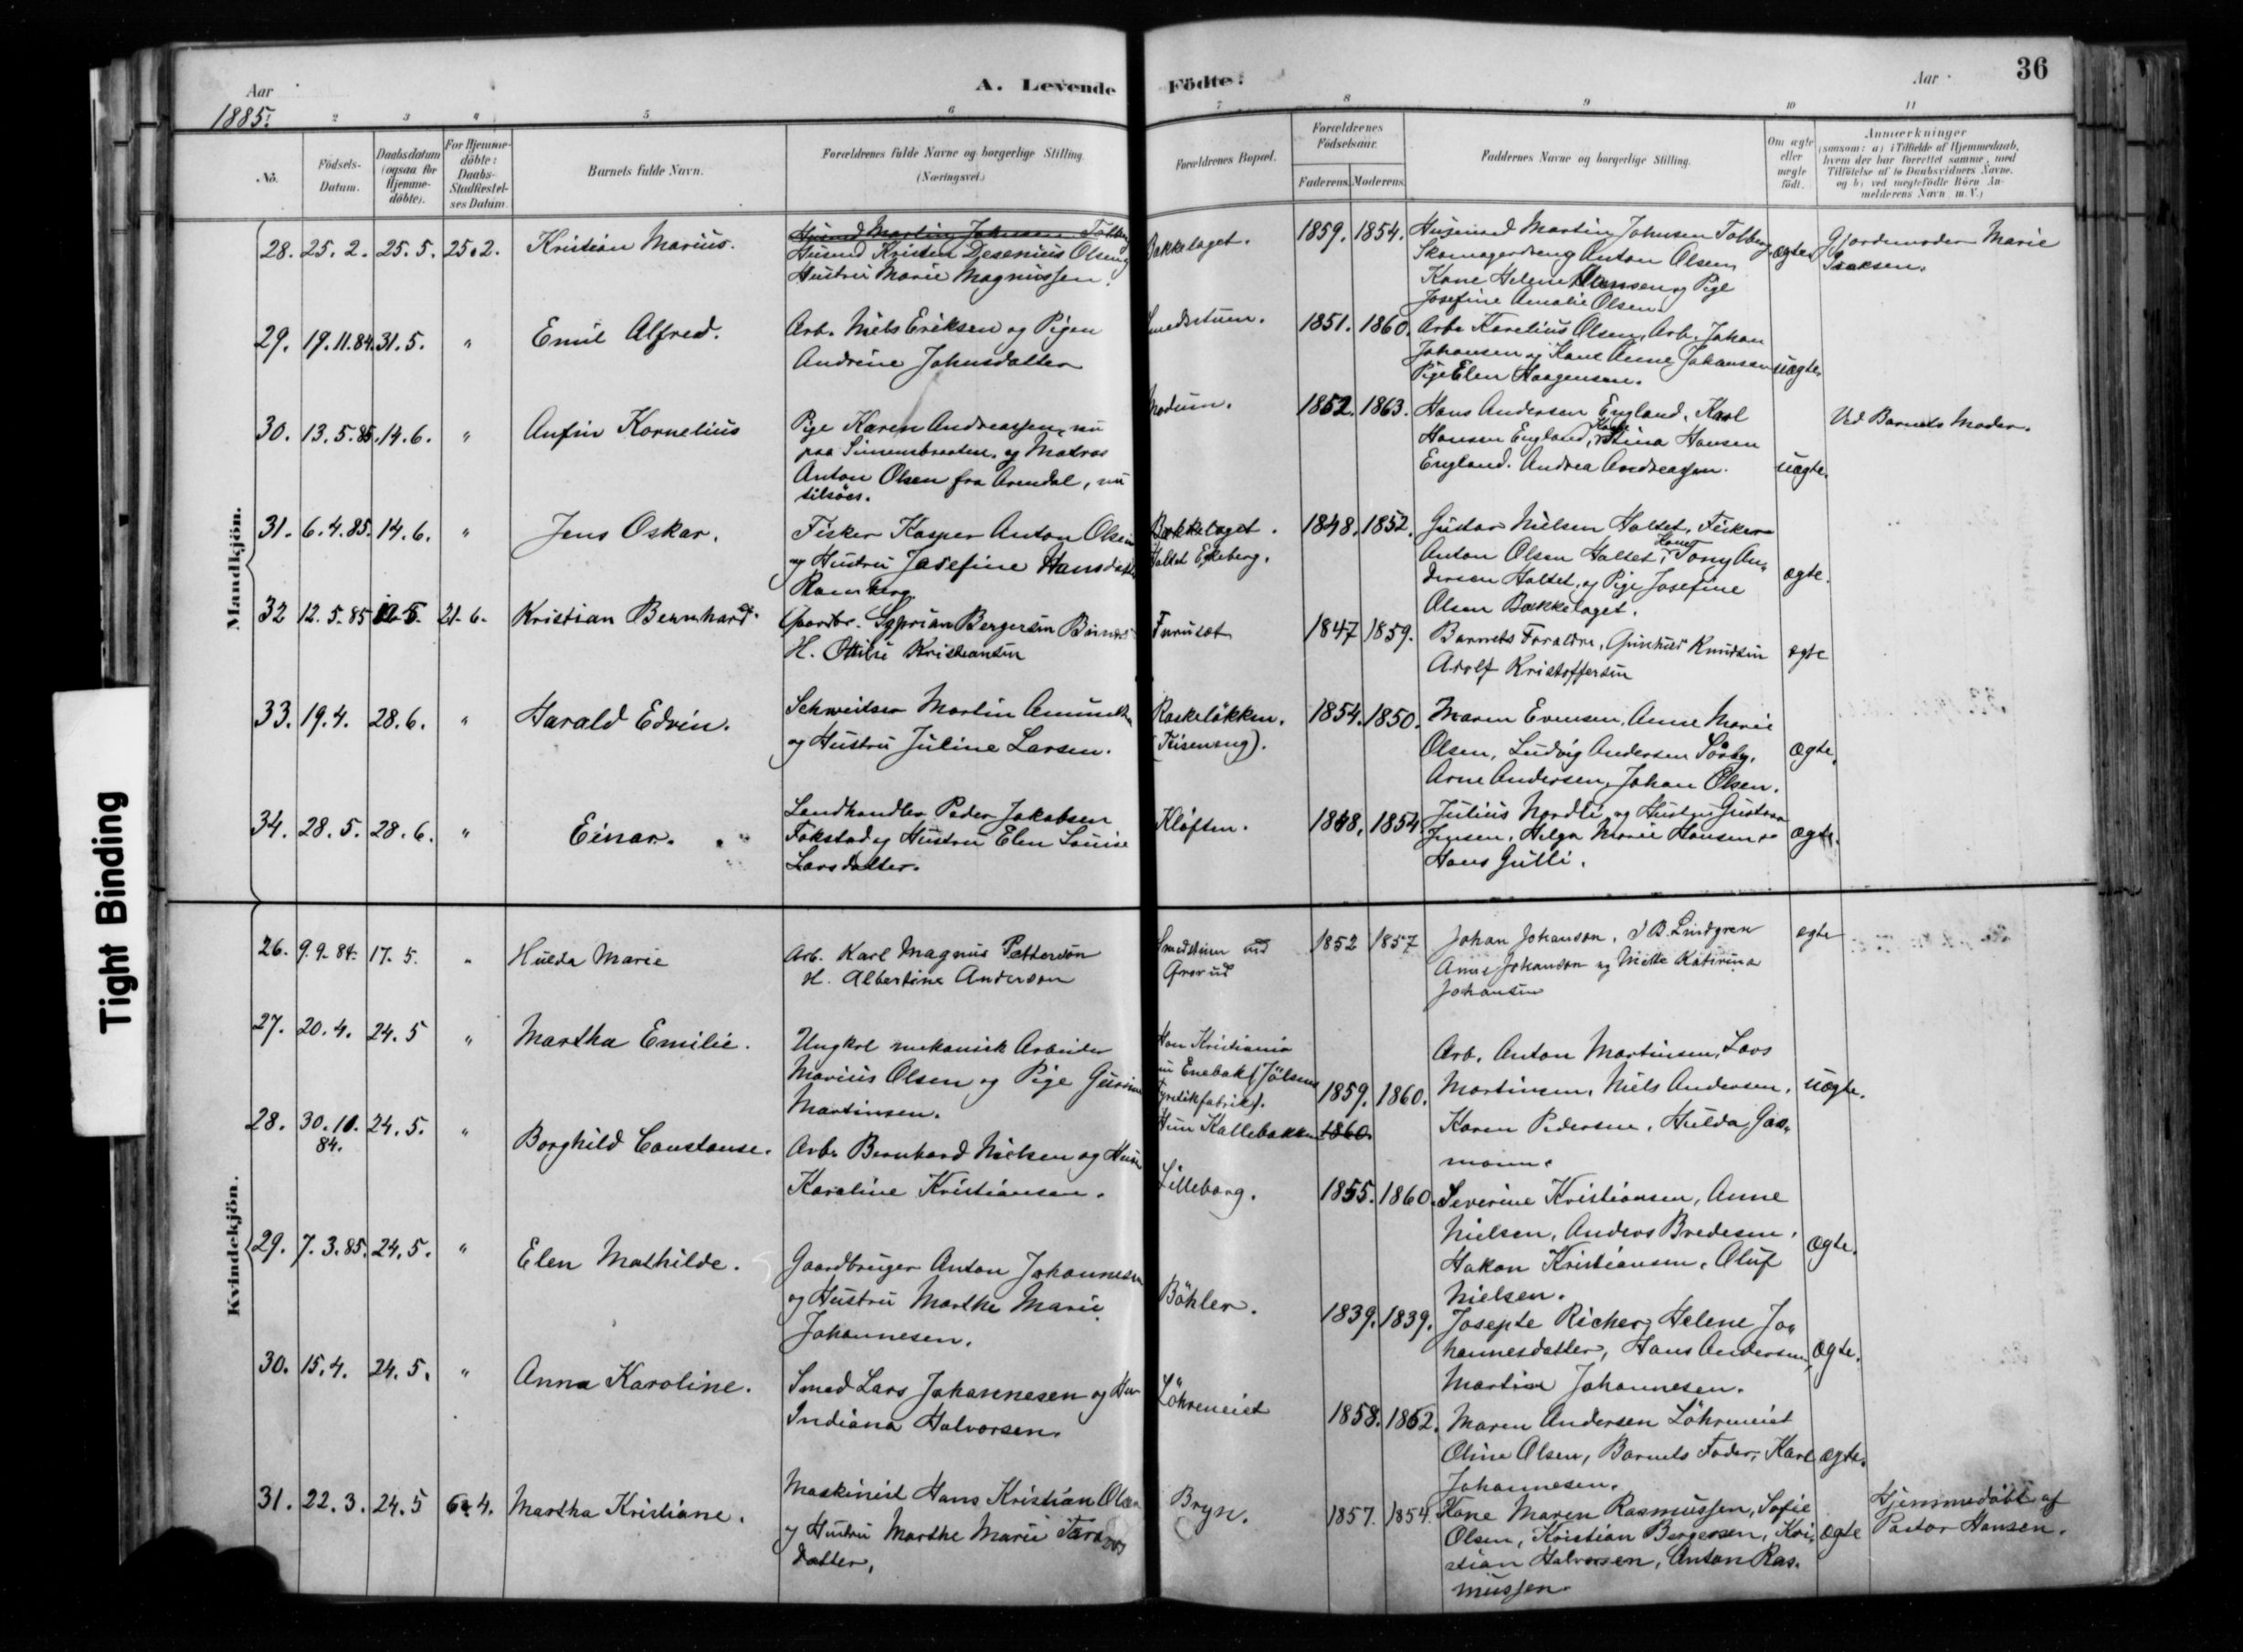 A. Levende Födte.
Aar 1885.
Aar
36
2 3 4 5 6 7 8 9 10 11
No.
Födsels-Datum.
Daabsdatum (ogsaa for Hjemme-döbte).
For Hjemme-döbte: Daabs-Stadfæstel-ses Datum.
Barnets fulde Navn.
Forældrenes fulde Navne og borgerlige Stilling. (Næringsvei.)
Forældrenes Bopæl.
Forældrenes Födselsaar.
Faderens. Moderens.
Faddernes Navne og borgerlige Stilling.
Om ægte eller uægte födt.
Anmærkninger (saasom: a) i Tilfælde af Hjemmedaab, hvem der har forrettet samme, med Tilföielse af to Daabsvidners Navne, og b) ved uægtefödte Börn An-melderens Navn m. V.)
Mandkjön.
28. 25. 2. 25. 5. 25. 2. Kristian Marius.
Husmd Martin Johnsen Tolberg
Husmd Kristen Desenius Olsen og
Hustru Marie Magnussen.
Bækkelaget. 1859. 1854.
Husmand Martin Johnsen Tolberg,
Skomagerdreng Anton Olsen,
Kone Helene Hansen og Pige
Josefine Amalie Olsen.
ægte.
Gjordemoder Marie
Isaksen.
29. 19. 11. 84. 31. 5. " Emil Alfred.
Arb. Niels Eriksen og Pigen
Andrine Johnsdatter
Smedstuen. 1851. 1860.
Arb. Karelius Olsen, Arb. Johan
Johansen og Kone Anne Johansen
Pige Elen Haagensen.
uægte.
30. 13. 5. 85. 14. 6. " Anfin Kornelius
Pige Karen Andreassen, nu
paa Simensbraaten, og Matros
Anton Olsen fra Arendal, nu
tilsöes.
Modum. 1852. 1863.
Hans Andersen England, Karl
Hansen England, Kone Stina Hansen
England. Andrea Andreassen.
uægte.
Ved Barnets Moder.
31. 6. 4. 85. 14. 6. " Jens Oskar.
Fisker Kasper Anton Olsen
og Hustru Josefine Hansdatter
Ramberg
Bækkelaget.
Holtet Ekeberg.
1848. 1852.
Gustav Nielsen Holtet, Fisker
Anton Olsen Holtet, Kone Tony An„
dersen Holtet, og Pige Josefine
Olsen Bækkelaget.
ægte.
32 12. 5. 85 21. 6. Kristian Bernhard.
Gaardbr. Syprian Bergersen
H. Ottilie Kristiansen
Furuset 1847 1859.
Barnets Forældre, Gunhild Knudsen
Adolf Kristoffersen
ægte
33. 19. 4. 28. 6. " Harald Edvin.
Schweitser Martin Amundsen
og Hustru Juline Larsen.
Raskelökken.
1854. 1850.
Maren Evensen, Anne Marie
Olsen, Ludvig Andersen Sörby,
Arne Andersen, Johan Olsen.
ægte.
34. 28. 5. 28. 6. " Einar.
Landhandler Peder Jakobsen
Fakstad og Hustru Elen Louise
Larsdatter.
Klöften. 1848. 1854
Julius Nordli og Hustru Gustava
Jensen, Helga Marie Hansen og
Hans Gulli.
ægte.
Kvindekjön.
26. 9. 9. 84. 17. 5. " Hulda Marie
Arb. Karl Magnus Petterson
H. Albertine Anderson
Smedstuen ved
Grorud
1852 1857
Johan Johanson, J B. Lindgren
Anne Johanson og Mette Katrina
Johansen
ægte
27. 20. 4. 24. 5 " Martha Emilie.
Ungkrl mekanisk Arbeider
Marius Olsen og Pige Gurine
Martinsen.
Han Kristiania
nu Enebak (Jölsens
Fyrstikfabrik).
Hun Kallebakken
1859. 1860.
1860.
Arb. Anton Martinsen, Lars
Martinsen, Niels Andersen,
Karen Pedersen, Hulda Gas„
mann.
uægte.
28. 30. 10. 84. 24. 5. " Borghild Constanse.
Arb. Bernhard Nielsen og Hustru
Karoline Kristiansen.
Lilleborg. 1855. 1860.
Severine Kristiansen, Anne
Nielsen, Anders Bredesen,
Hakon Kristiansen, Oluf
Nielsen.
ægte.
29. 7. 3. 85. 24. 5. " Elen Mathilde.
Gaardbruger Anton Johannesen
og Hustru Marthe Marie
Johannesen.
Böhler. 1839. 1839.
Josepte Richer, Helene Jo„
hannesdatter, Hans Andersen,
Martin Johannesen.
ægte.
30. 15. 4. 24. 5. " Anna Karoline.
Smed Lars Johannesen og Hu
Indiana Halvorsen.
Löhreneiet 1858. 1862.
Maren Andersen Löhreneiet
Oline Olsen, Barnets Fader, Karl
Johannesen.
ægte.
31. 22. 3. 24. 5 6. 4. Martha Kristiane.
Maskinist Hans Kristian Olsen
og Hustru Marthe Marie
datter.
Bryn. 1857. 1854.
Kone Maren Rasmussen, Sofie
Olsen, Kristian Bergersen, Kri„
stian Halvorsen, Anton Ras„
mussen.
ægte
Hjemmedöbt af
Pastor Hansen.
Tight Binding